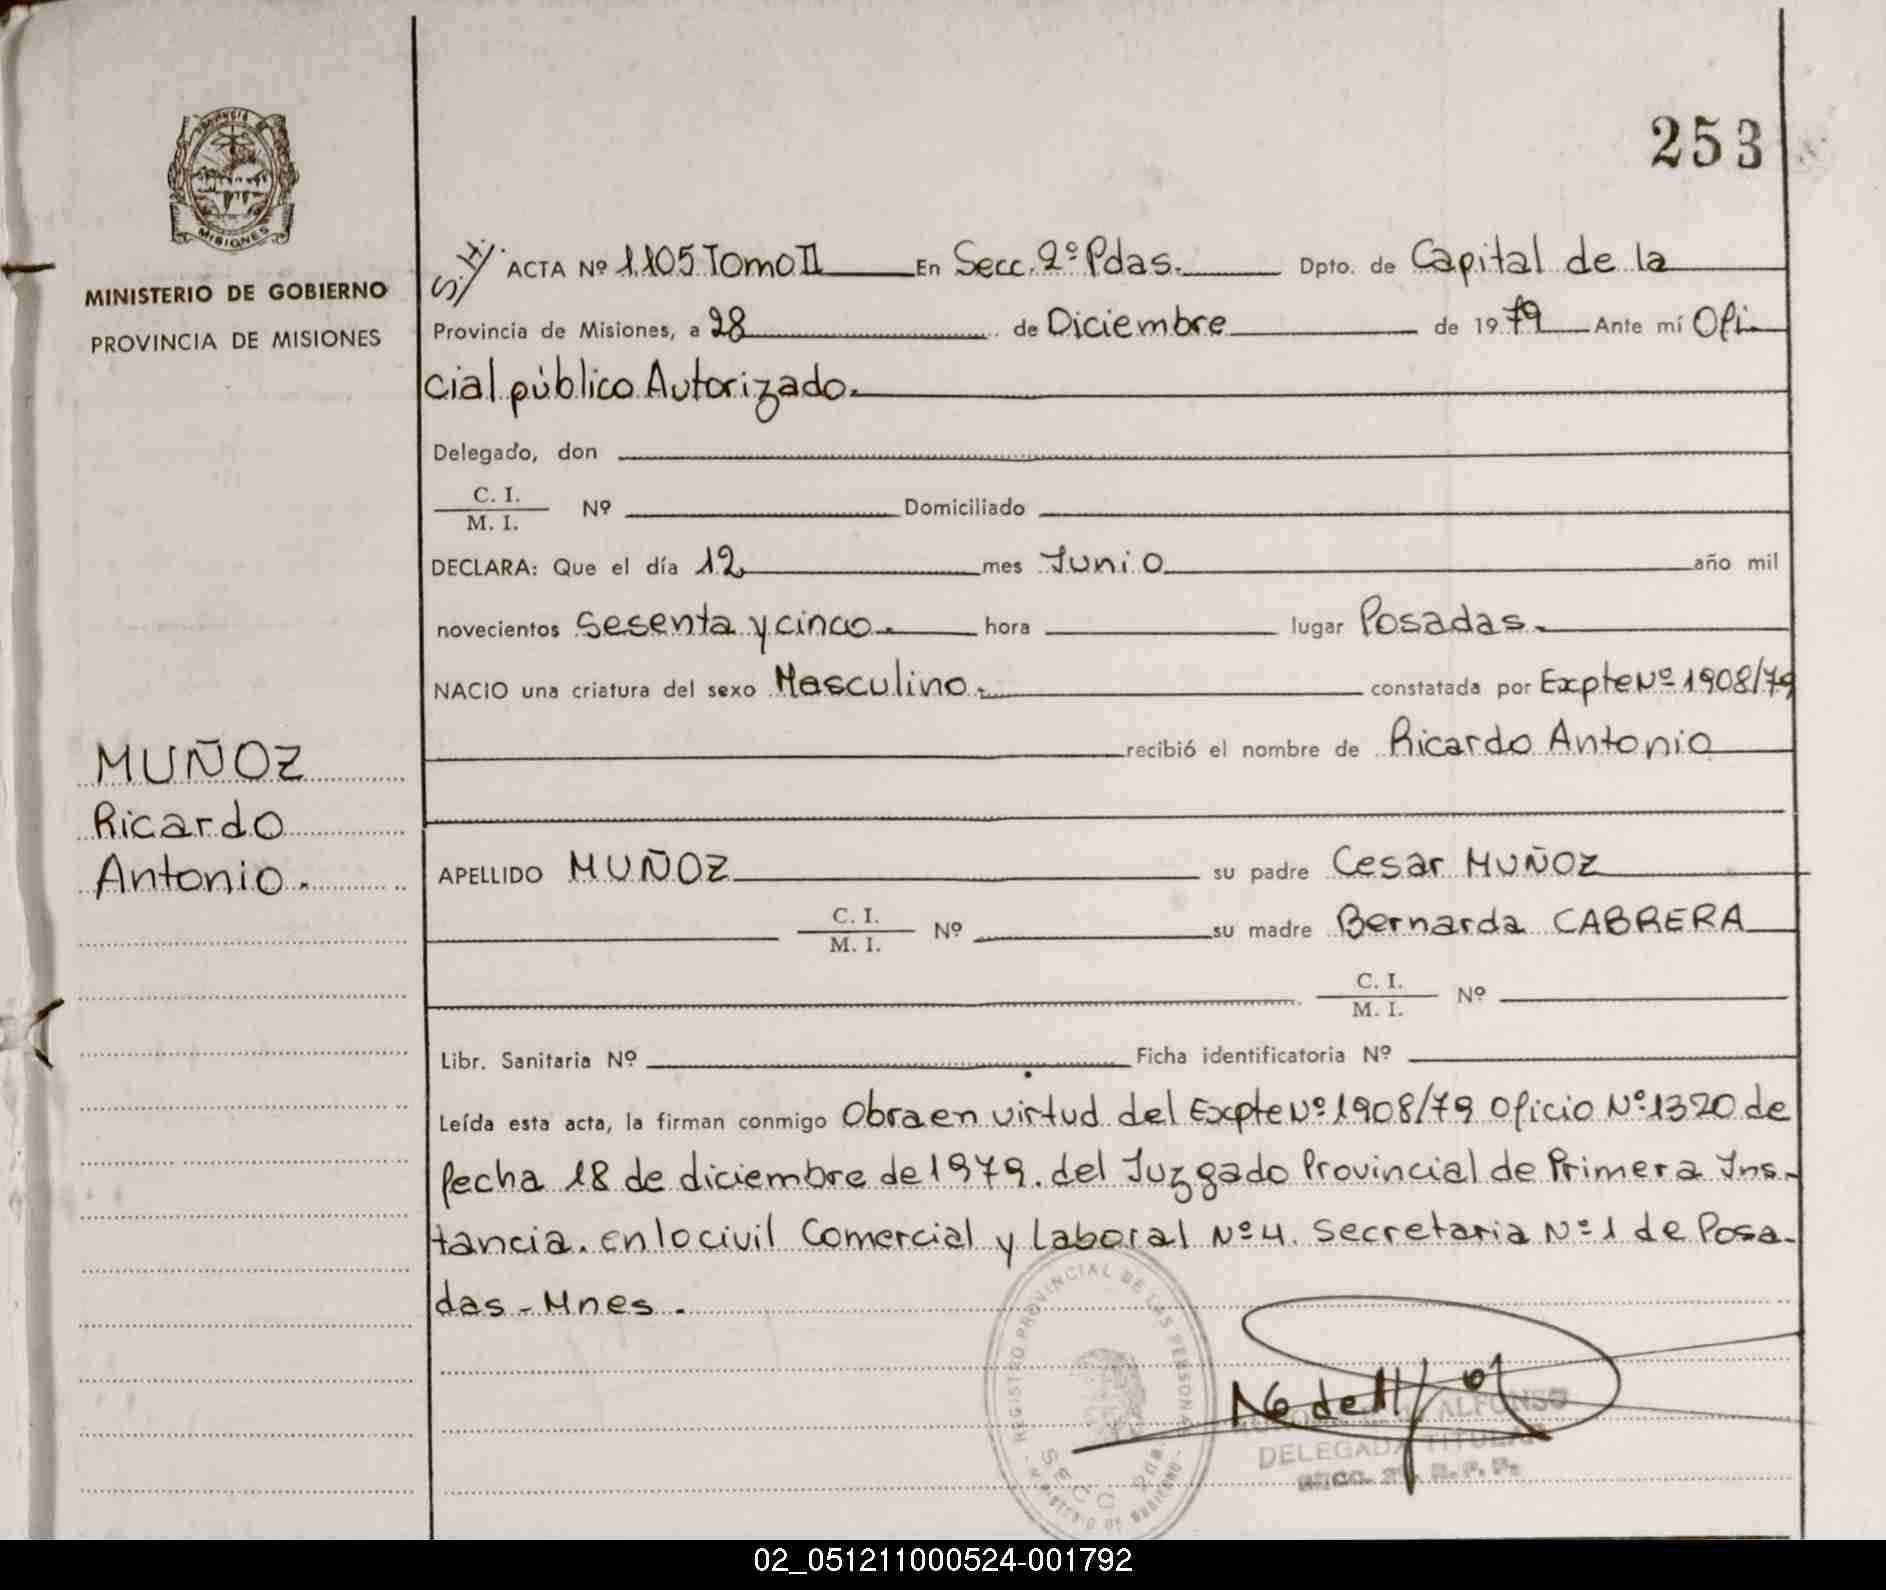 253
MISIONES
MINISTERIO DE GOBIERNO
PROVINCIA DE MISIONES
MUÑOZ
Ricardo
Antonio.
S.H. ACTA Nº 1.105 Tomo II En Secc. 2º Pdas. Dpto. de Capital de la
Provincia de Misiones, a 28 de Diciembre de 1979 Ante mí Ofi-
cial público Autorizado.
Delegado, don
C. I.
M. I. Nº Domiciliado
DECLARA: Que el día 12 mes Junio año mil
novecientos Sesenta y cinco. hora lugar Posadas.
NACIO una criatura del sexo Masculino. constatada por Expte Nº 1908/79
recibió el nombre de Ricardo Antonio
APELLIDO MUÑOZ su padre Cesar MUÑOZ
C. I.
M. I. Nº su madre Bernarda CABRERA
C. I.
M. I. Nº
Libr. Sanitaria Nº Ficha identificatoria Nº
Leída esta acta, la firman conmigo Obra en virtud del Expte Nº 1908/79 Oficio Nº 1320 de
fecha 18 de diciembre de 1979. del Juzgado Provincial de Primera Ins-
tancia. en lo civil Comercial y Laboral Nº 4. Secretaria Nº 1 de Posa-
das - Mnes.
REGISTRO PROVINCIAL DE LAS PERSONAS
SECC 2da.
MINISTERIO DE GOBIERNO
ALFONSO
DELEGADA TITULAR
SECC. 2ª. R. P. P.
02_051211000524-001792